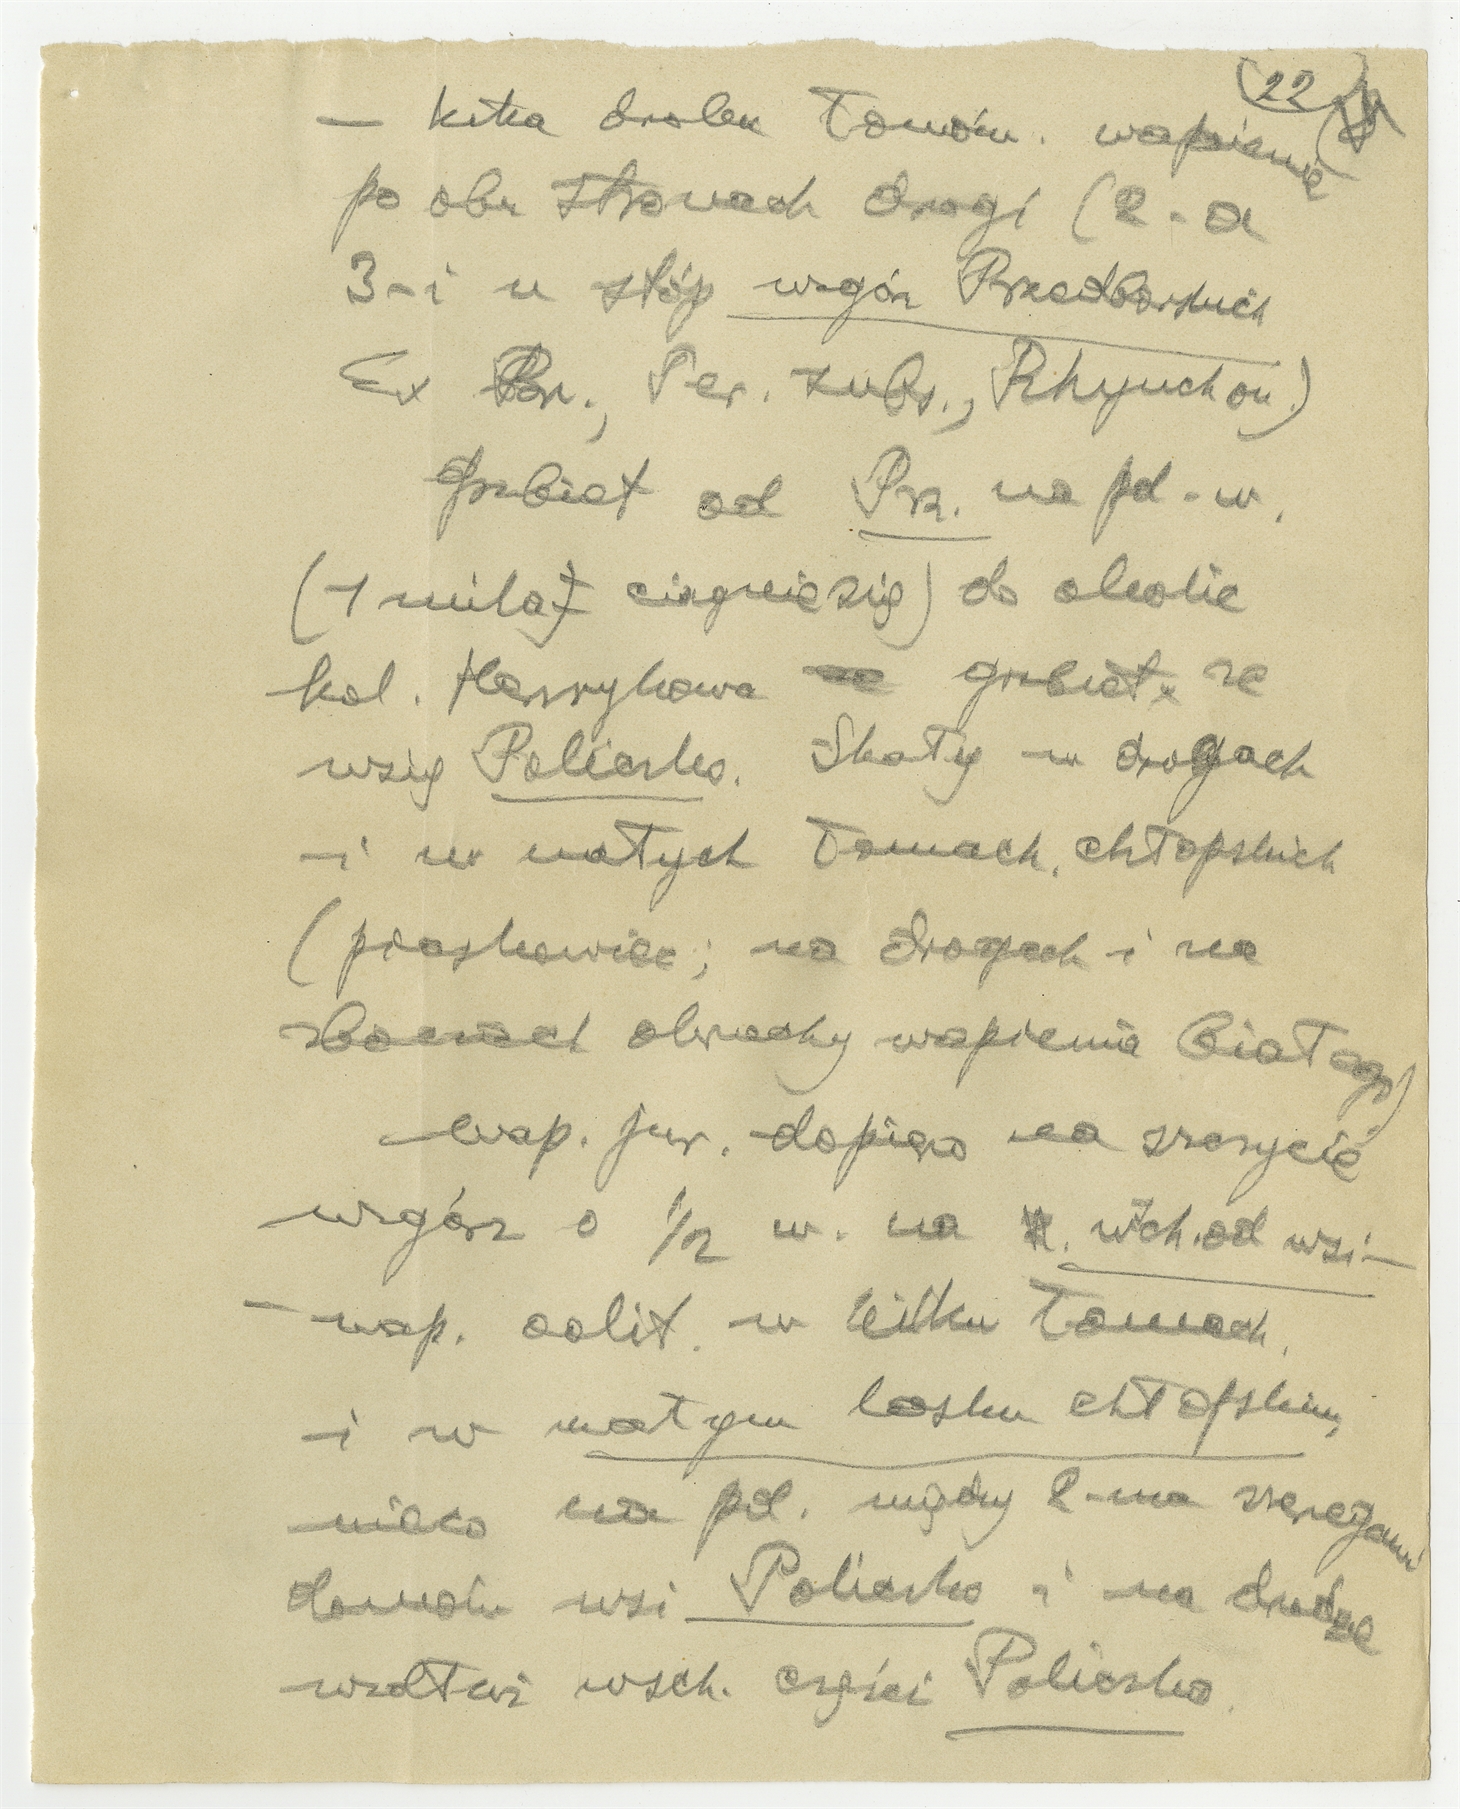 (22)
— kilka drobn. łomów. wapienia
po obu stronach drogi (2-a
3-i u stóp wzgórz Przedborskich
Ex Br., Ter. subs., Rhynchon.)
grzbiet od Prz. na pd-w.
(1 mila ciągnie się) do okolic
kol. grzbiet ze
wsią Policzko. Skały w drogach
i w małych łomach chłopskich
(piaskowiec; na drogach i na
zboczach okruchy wapienia białego)
wap. jur. dopiero na szczycie
wzgórz o 1/2 w. na wsch. od wsi —
— wap. oolit. w kilku łomach
i w małym lasku chłopskim,
nieco na pd. między 2-ma szeregami
domów wsi Policzko i na drodze
wzdłuż wsch. części Policzko.